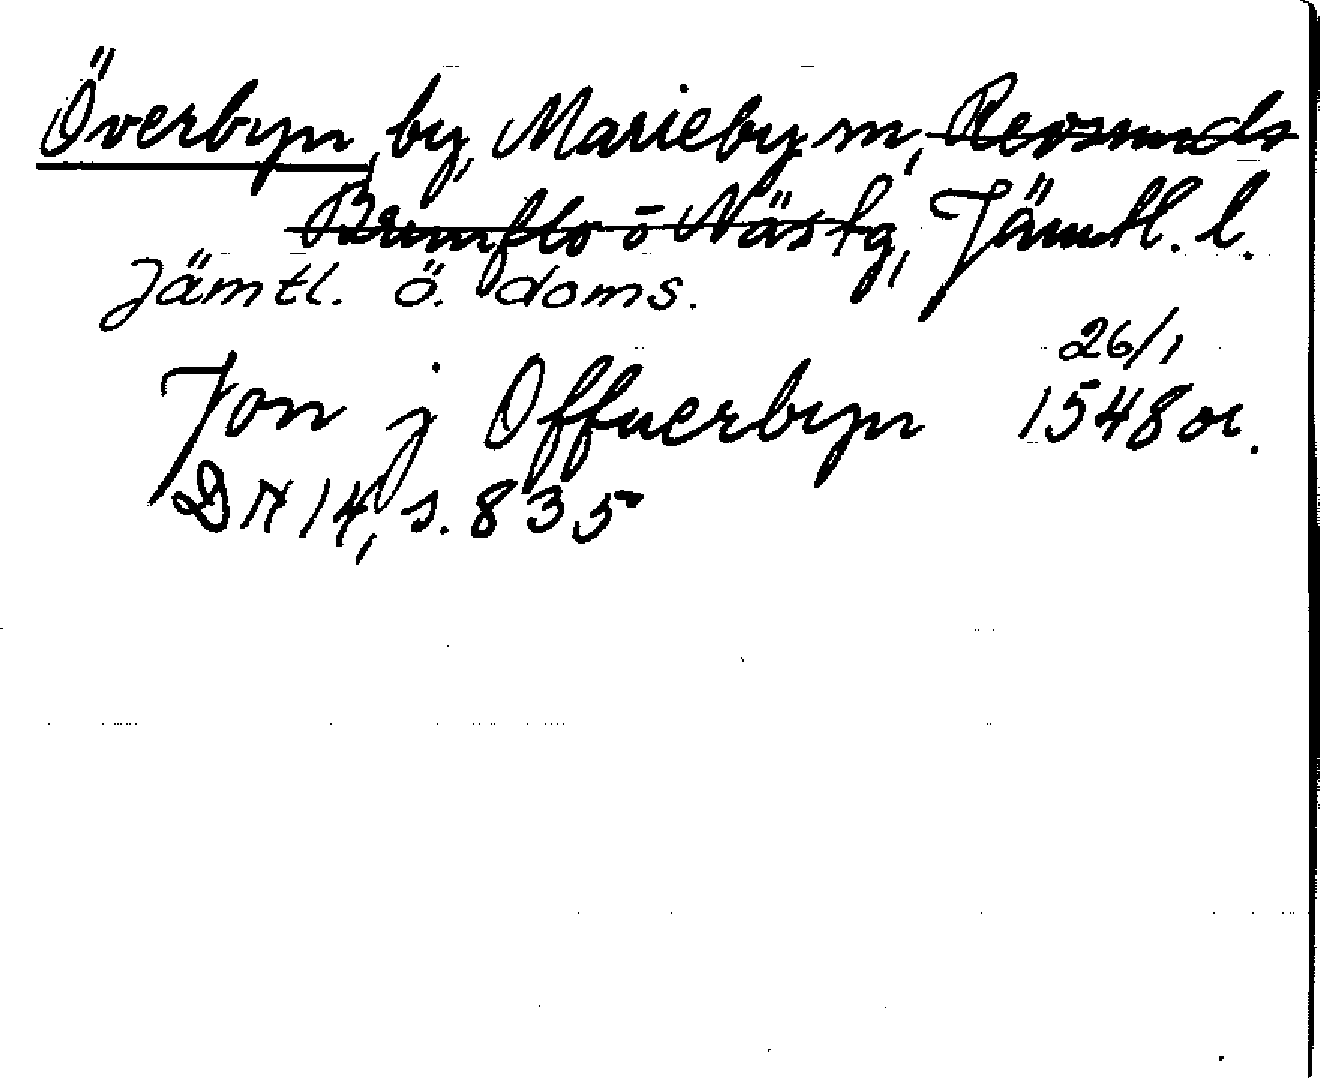 Överbyn, by, Marieby sn, Revsunds
Brunflo o Näs tg, Jämtl. l.
Jämtl. ö. doms.
26/1
Jon j Offuerbyn 1548 or.
DN 14, s. 835